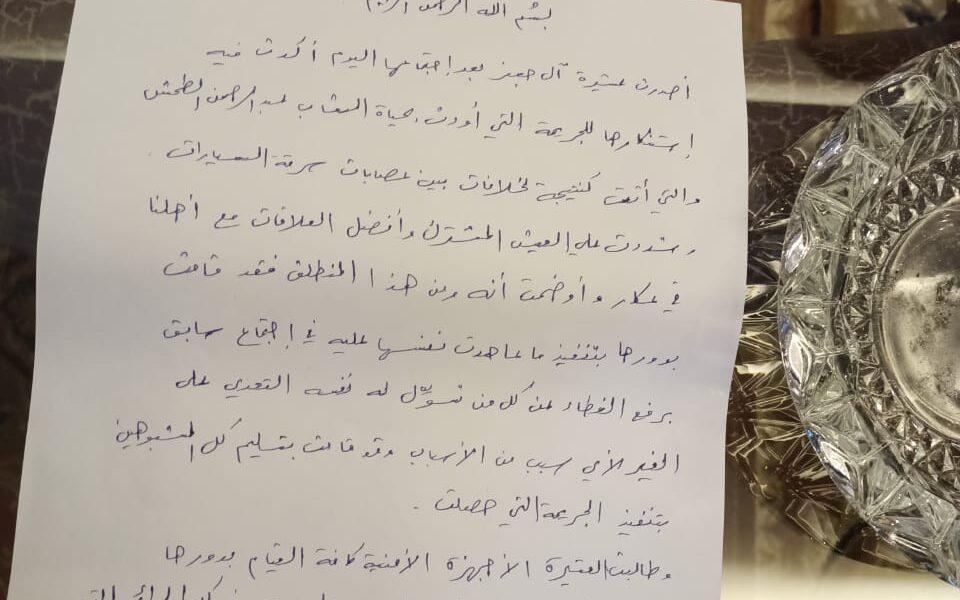 بسم الله الرحمن الرحيم
أصدرت عشيرة آل جعفر بعد إجتماعها اليوم أكدت فيه
إستنكارها للجريمة التي أودت بحياة الشاب عبد الرحمن
والتي أتت كنتيجة لخلافات بين عصابات سرقة السيارات .
وشددت على العيش المشترك وأفضل العلاقات مع أهلنا
في عكار وأوضحت أنه ومن هذا المنطلق فقد قامت
بدورها بتنفيذ ما عاهدت نفسها عليه في إجتماع سابق
برفع الغطاء عن كل من تسوّل له نفسه التعدي على
الغير لأي سبب من الأسباب وقد قامت بتسليم كل المشبوهين
بتنفيذ الجريمة التي حصلت .
وطالبت العشيرة الأجهزة الأمنية كافة القيام بدورها